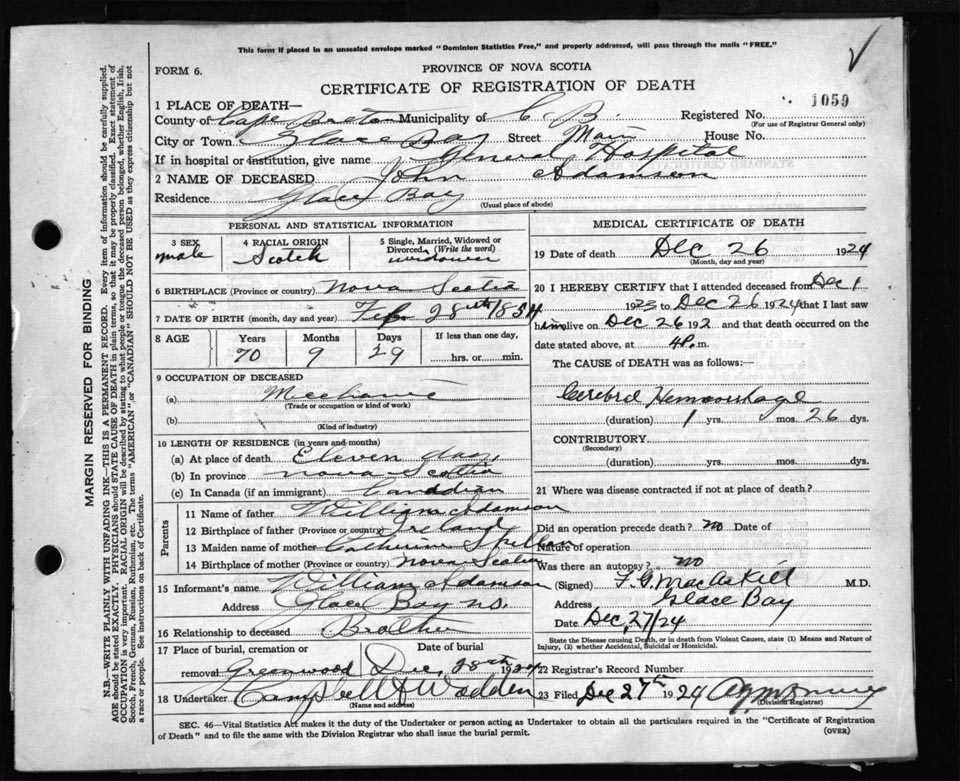 This form if placed in an unsealed envelope marked "Dominion Statistics Free," and properly addressed, will pass through the mails "FREE."
FORM 6.
PROVINCE OF NOVA SCOTIA
CERTIFICATE OF REGISTRATION OF DEATH
1059
1 PLACE OF DEATH—
County of Cape Breton Municipality of C. B. Registered No.
(For use of Registrar General only)
City or Town Glace Bay Street Main House No.
If in hospital or institution, give name General Hospital
2 NAME OF DECEASED John Adamson
Residence Glace Bay
(Usual place of abode)
PERSONAL AND STATISTICAL INFORMATION
3 SEX male
4 RACIAL ORIGIN Scotch
5 Single, Married, Widowed or Divorced (Write the word) widower
6 BIRTHPLACE (Province or country) Nova Scotia
7 DATE OF BIRTH (month, day and year) Feb 28th 1854
8 AGE Years 70 Months 9 Days 29 If less than one day, hrs. or min.
9 OCCUPATION OF DECEASED
(a) Mechanic
(Trade or occupation or kind of work)
(b)
(Kind of industry)
10 LENGTH OF RESIDENCE (in years and months)
(a) At place of death Eleven days
(b) In province Nova Scotia
(c) In Canada (if an immigrant) Canddian
Parents
11 Name of father William Adamson
12 Birthplace of father (Province or country) Ireland
13 Maiden name of mother Catherine Spillan
14 Birthplace of mother (Province or country) Nova Scotia
15 Informant's name William Adamson
Address Glace Bay N.S.
16 Relationship to deceased Brother
17 Place of burial, cremation or removal Greenwood Date of burial Dec. 28th 1924
18 Undertaker Campbell & Wadden
(Name and address)
MEDICAL CERTIFICATE OF DEATH
19 Date of death Dec 26 1924
(Month, day and year)
20 I HEREBY CERTIFY that I attended deceased from Dec 1
1923 to Dec 26 1924 that I last saw
him alive on Dec 26 192 and that death occurred on
date stated above, at 4 P. m
The CAUSE of DEATH was as follows:—
Cerebral Hemorrhage
(duration) 1 yrs. mos. 26 dys.
CONTRIBUTORY
(Secondary)
(duration) yrs. mos. dys.
21 Where was disease contracted if not at place of death?
Did an operation precede death? no Date of
Nature of operation
Was there an autopsy? no
(Signed) F. G. MacAskill M.D.
Address Glace Bay
Date Dec 27/24
State the Disease causing Death, or in death from Violent Causes, state (1) Means and Nature of
Injury, (2) whether Accidental, Suicidal or Homicidal.
22 Registrar's Record Number
23 Filed Dec 27th 1924
(Division Registrar)
SEC. 46—Vital Statistics Act makes it the duty of the Undertaker or person acting as Undertaker to obtain all the particulars required in the "Certificate of Registration
of Death" and to file the same with the Division Registrar who shall issue the burial permit.
(OVER)
MARGIN RESERVED FOR BINDING
N.B.—WRITE PLAINLY WITH UNFADING INK—THIS IS A PERMANENT RECORD. Every item of information should be carefully supplied.
AGE should be stated EXACTLY. PHYSICIANS should STATE CAUSE OF DEATH in plain terms, so that it may be properly classified. Exact statement of
OCCUPATION is very important. RACIAL ORIGIN will be described by stating to what people or tongue the deceased person belonged, whether English, Irish,
Scotch, French, German, Russian, Ruthenian, etc. The terms "AMERICAN" or "CANADIAN" SHOULD NOT BE USED as they express citizenship but not
a race or people. See instructions on back of Certificate.